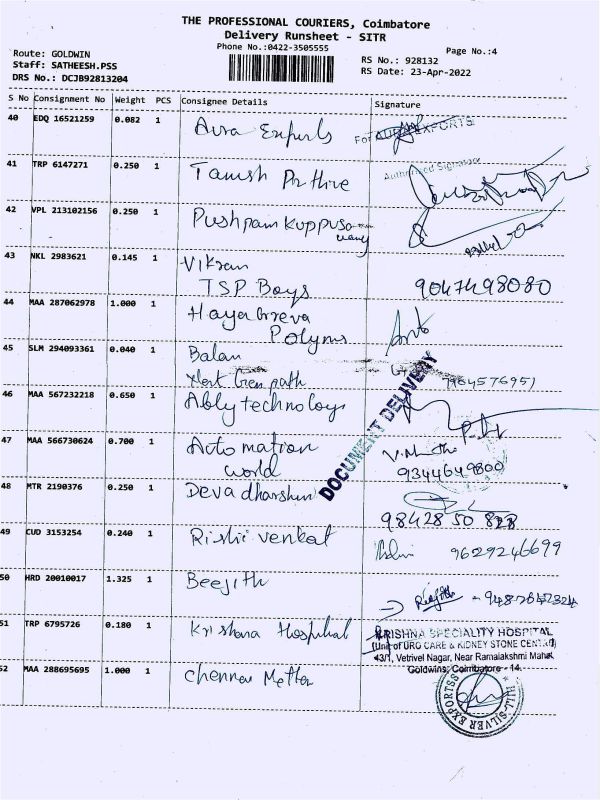 THE PROFESSIONAL COURIERS, Coimbatore
Delivery Runsheet - SITR
Phone No.:0422-3505555
Page No.:4
Route: GOLDWIN
Staff: SATHEESH.PSS
DRS No.: DCJB92813204
RS No.: 928132
RS Date: 23-Apr-2022
S No Consignment No Weight PCS Consignee Details Signature
40 EDQ 16521259 0.082 1 Aura Exports For AURA EXPORTS
41 TRP 6147271 0.250 1 Tanish Prthive Authorised Signatory
42 VPL 213102156 0.250 1 Pushpam Kuppuso
wamy
43 NKL 2983621 0.145 1 Vikram
TSP Boys 9047498080
44 MAA 287062978 1.000 1 Hayagreva
Polyms
45 SLM 294093361 0.040 1 Balan
Next Gren path 7904576951
46 MAA 567232218 0.650 1 Ably technology
DOCUMENT DELIVERY
47 MAA 566730624 0.700 1 Automation
world 9344649800
48 MTR 2190376 0.250 1 Deva dharshini
98428 50 828
49 CUD 3153254 0.240 1 Rishi venkat 9629246699
50 HRD 20010017 1.325 1 Beejith
51 TRP 6795726 0.180 1 Krishana Hospital KRISHNA SPECIALITY HOSPITAL
(Unit of URO CARE & KIDNEY STONE CENTRE)
43/1, Vetrivel Nagar, Near Ramalakshmi Mahal
Goldwins, Coimbatore - 14.
52 MAA 288695695 1.000 1 Chennai Metter
HILL-SILVER EXPORTSS